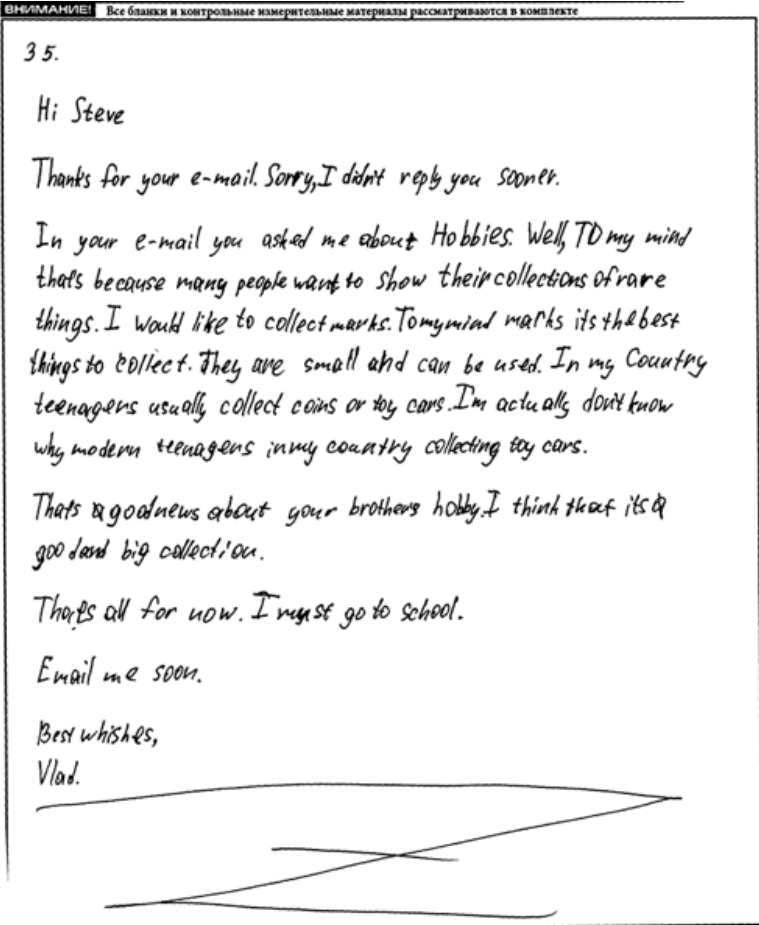 ВНИМАНИЕ! Все бланки и контрольные измерительные материалы рассматриваются в комплекте
35.
Hi Steve
Thanks for your e-mail. Sorry, I didn't reply you sooner.
In your e-mail you asked me about Hobbies. Well, TO my mind
that's because many people want to show their collections of rare
things. I would like to collect marks. To my mind marks its the best
things to collect. They are small and can be used. In my Country
teenagers usually collect coins or toy cars. I'm actually don't know
why modern teenagers in my country collecting toy cars.
Thats a good news about your brothers hobby. I think that its a
good and big collection.
That's all for now. I must go to school.
Email me soon.
Best whishes,
Vlad.